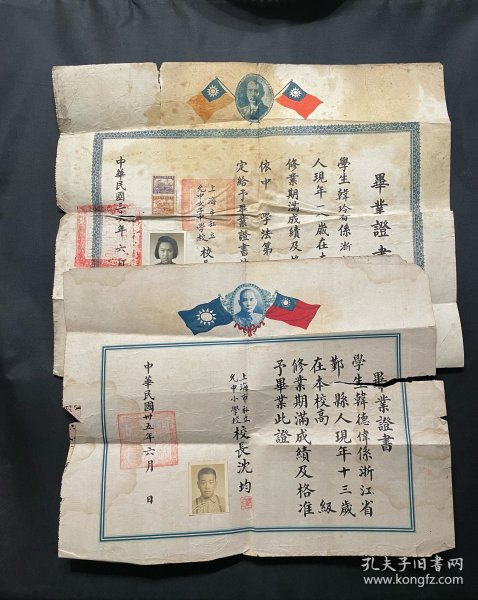 畢業證書
學生韓玲
係浙
人現年
八歲在
修業期滿成績及
依中
學法第
定給予畢業證書
上海市私立
允中女子中學校
校長
中華民國
年六
畢業證書
學生韓德偉係浙江省
鄞縣人現年十三歲
在本校高
級
修業期滿成績及格准
予畢業此證
上海市私立
允中小學校
校長沈均
中華民國卅五年六月
日
孔夫子旧书网
www.kongfz.com